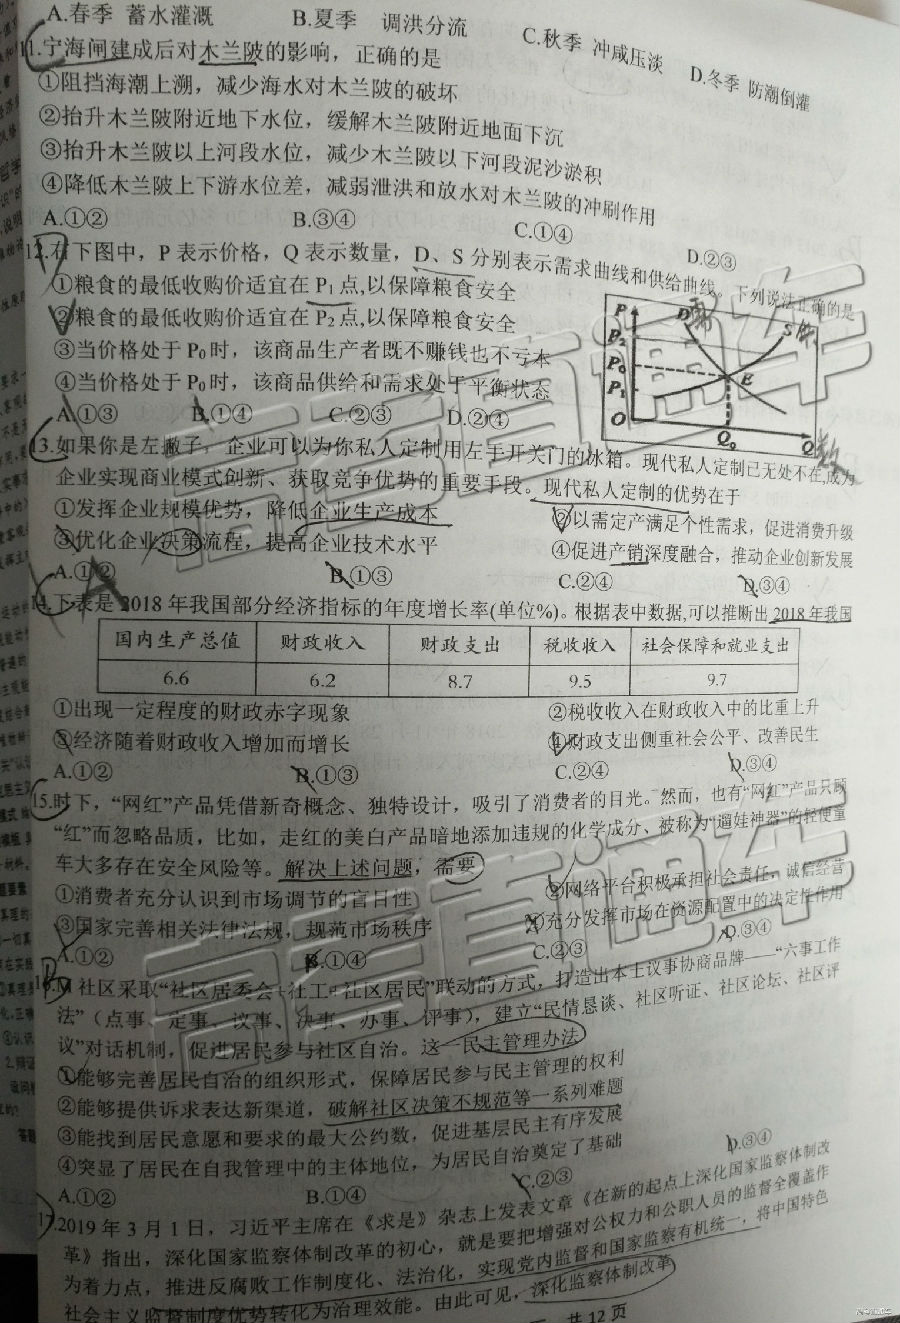 A.春季 蓄水灌溉 B.夏季 调洪分流 C.秋季 冲咸压淡 D.冬季 防潮倒灌
11.宁海闸建成后对木兰陂的影响，正确的是
①阻挡海潮上溯，减少海水对木兰陂的破坏
②抬升木兰陂附近地下水位，缓解木兰陂附近地面下沉
③抬升木兰陂以上河段水位，减少木兰陂以下河段泥沙淤积
④降低木兰陂上下游水位差，减弱泄洪和放水对木兰陂的冲刷作用
A.①② B.③④ C.①④ D.②③
12.在下图中，P 表示价格，Q 表示数量，D、S 分别表示需求曲线和供给曲线。下列说法正确的是
①粮食的最低收购价适宜在 P₁ 点,以保障粮食安全
②粮食的最低收购价适宜在 P₂ 点,以保障粮食安全
③当价格处于 P₀ 时，该商品生产者既不赚钱也不亏本
④当价格处于 P₀ 时，该商品供给和需求处于平衡状态
A.①③ B.①④ C.②③ D.②④
P D S
P₂
P₀ E
P₁
O Q₀ Q
13.如果你是左撇子，企业可以为你私人定制用左手开关门的冰箱。现代私人定制已无处不在,成为
企业实现商业模式创新、获取竞争优势的重要手段。现代私人定制的优势在于
①发挥企业规模优势，降低企业生产成本 ②以需定产满足个性需求，促进消费升级
③优化企业决策流程，提高企业技术水平 ④促进产销深度融合，推动企业创新发展
A.①② B.①③ C.②④ D.③④
14.下表是 2018 年我国部分经济指标的年度增长率(单位%)。根据表中数据,可以推断出 2018 年我国
国内生产总值 财政收入 财政支出 税收收入 社会保障和就业支出
6.6 6.2 8.7 9.5 9.7
①出现一定程度的财政赤字现象 ②税收收入在财政收入中的比重上升
③经济随着财政收入增加而增长 ④财政支出侧重社会公平、改善民生
A.①② B.①③ C.②④ D.③④
15.时下，“网红”产品凭借新奇概念、独特设计，吸引了消费者的目光。然而，也有“网红”产品只顾
“红”而忽略品质，比如，走红的美白产品暗地添加违规的化学成分、被称为“遛娃神器”的轻便童
车大多存在安全风险等。解决上述问题，需要
①消费者充分认识到市场调节的盲目性 ②网络平台积极承担社会责任，诚信经营
③国家完善相关法律法规，规范市场秩序 ④充分发挥市场在资源配置中的决定性作用
A.①② B.①④ C.②③ D.③④
16.M 社区采取“社区居委会+社工+社区居民”联动的方式，打造出本土议事协商品牌——“六事工作
法”（点事、定事、议事、决事、办事、评事），建立“民情恳谈、社区听证、社区论坛、社区评
议”对话机制，促进居民参与社区自治。这一民主管理办法
①能够完善居民自治的组织形式，保障居民参与民主管理的权利
②能够提供诉求表达新渠道，破解社区决策不规范等一系列难题
③能找到居民意愿和要求的最大公约数，促进基层民主有序发展
④突显了居民在自我管理中的主体地位，为居民自治奠定了基础
A.①② B.①④ C.②③ D.③④
17.2019 年 3 月 1 日，习近平主席在《求是》杂志上发表文章《在新的起点上深化国家监察体制改
革》指出，深化国家监察体制改革的初心，就是要把增强对公权力和公职人员的监督全覆盖作
为着力点，推进反腐败工作制度化、法治化，实现党内监督和国家监察有机统一，将中国特色
社会主义监督制度优势转化为治理效能。由此可见，深化监察体制改革
共 12 页
高考直通车